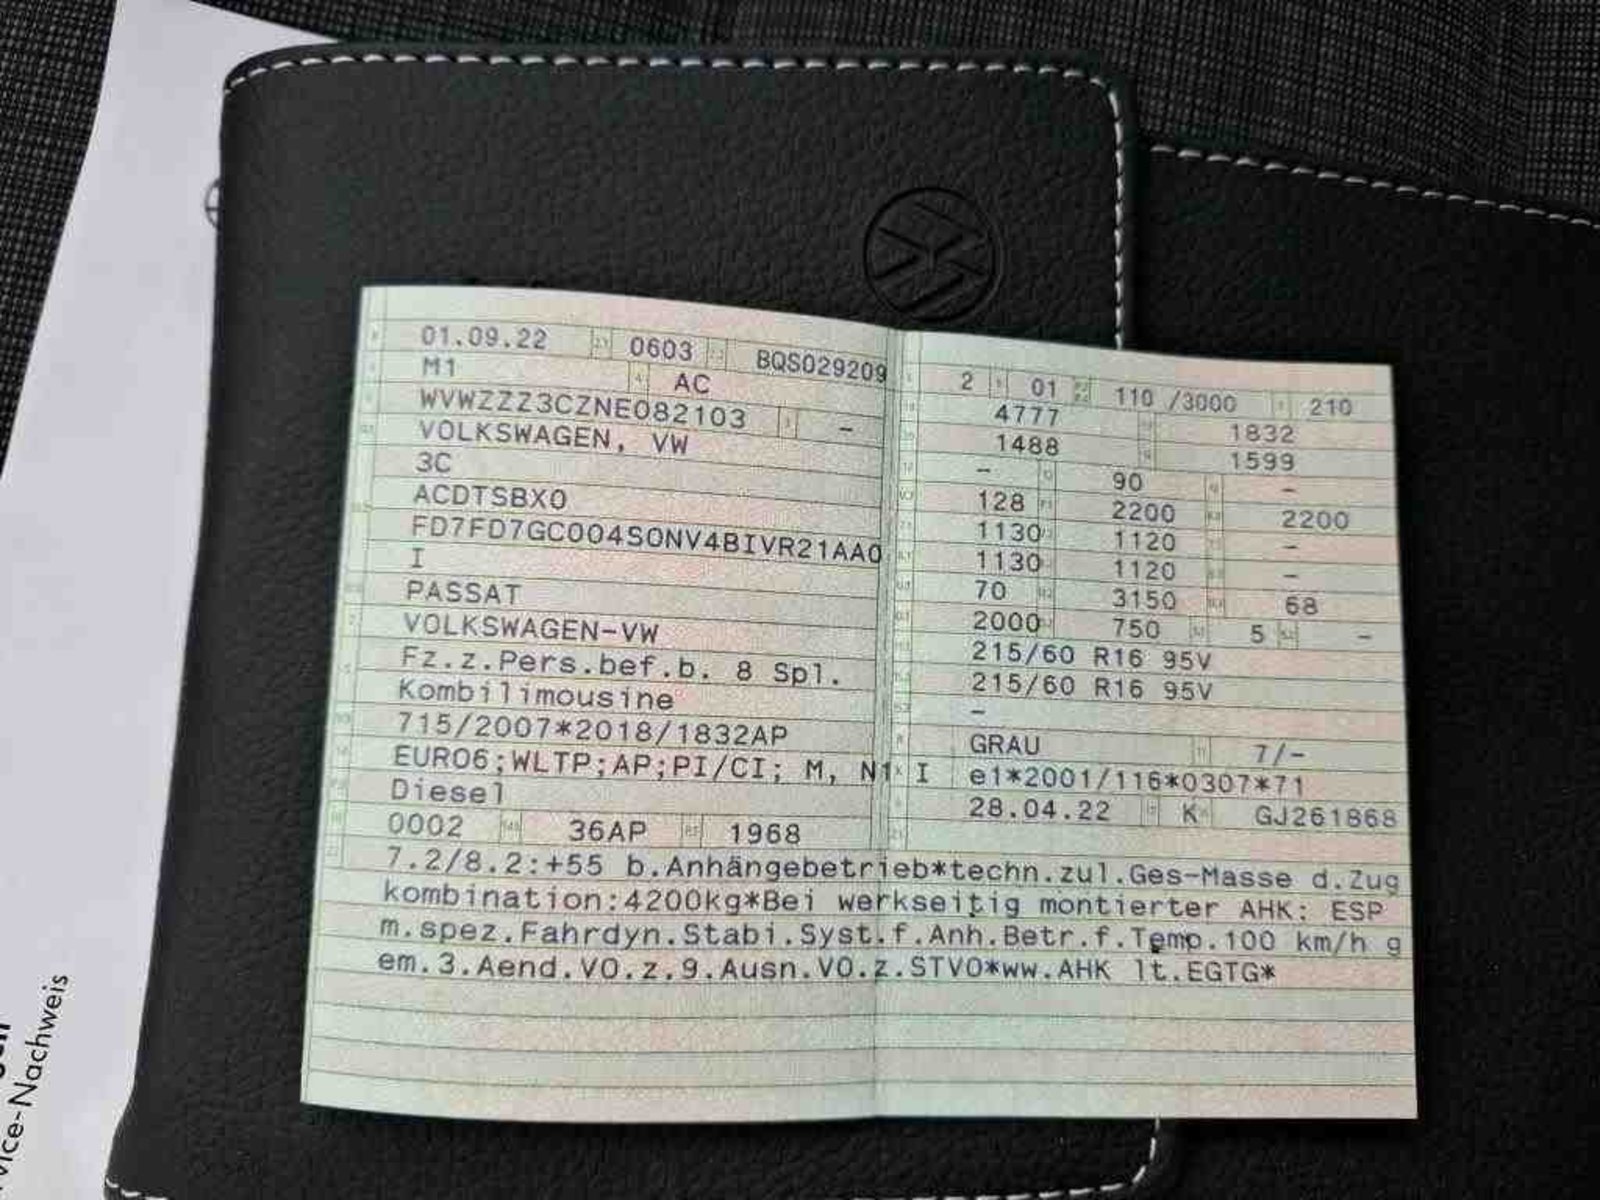 01.09.22 0603 BQS029209
M1 AC
WVWZZZ3CZNE082103 -
VOLKSWAGEN, VW
3C
ACDTSBX0
FD7FD7GC004S0NV4BIVR21AA0
I
PASSAT
VOLKSWAGEN-VW
Fz.z.Pers.bef.b. 8 Spl.
Kombilimousine
715/2007*2018/1832AP
EURO6;WLTP;AP;PI/CI; M, N1 I
Diesel
0002 36AP 1968
2 01 110 /3000 210
4777 1832
1488 1599
- 90 -
128 2200 2200
1130 1120 -
1130 1120 -
70 3150 68
2000 750 5 -
215/60 R16 95V
215/60 R16 95V
-
GRAU 7/-
e1*2001/116*0307*71
28.04.22 K GJ261868
7.2/8.2:+55 b.Anhängebetrieb*techn.zul.Ges-Masse d.Zug
kombination:4200kg*Bei werkseitig montierter AHK: ESP
m.spez.Fahrdyn.Stabi.Syst.f.Anh.Betr.f.Temp.100 km/h g
em.3.Aend.VO.z.9.Ausn.VO.z.STVO*ww.AHK lt.EGTG*
vice-Nachweis